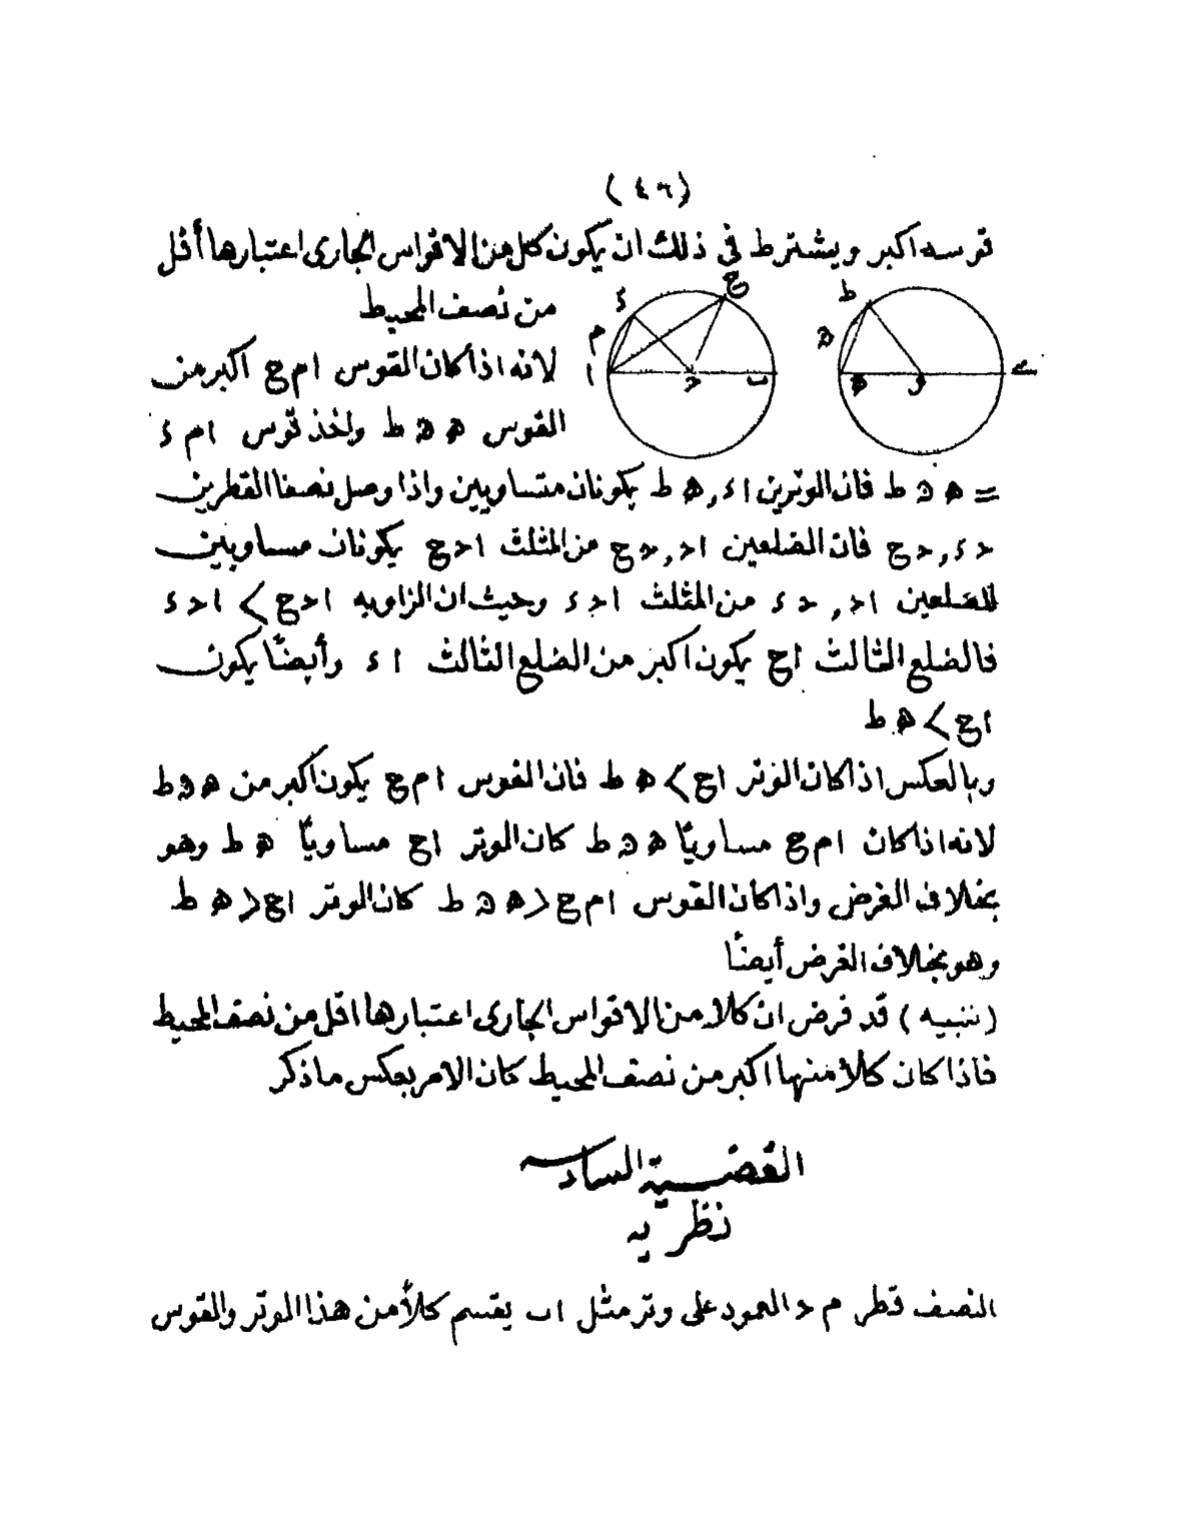 (٤٦)
قوسه اكبر ويشترط فى ذلك ان يكون كل من الاقواس الجارى اعتبارها أقل
من نصف المحيط
لانه اذا كان القوس ام ح اكبر من
القوس ه ة ط واخذ قوس ام ء
= ه ة ط فان الوترين اء , ه ط يكونان متساويين واذا وصل نصفا القطرين
د ء , د ح فان الضلعين اد , د ح من المثلث ا د ح يكونان مساويين
للضلعين اد , د ء من المثلث ا د ء وحيث ان الزاويه ا د ح > ا د ء
فالضلع الثالث اح يكون اكبر من الضلع الثالث ا ء وأيضًا يكون
اح > ه ط
وبالعكس اذا كان الوتر اح > ه ط فان القوس ام ح يكون اكبر من ه ة ط
لانه اذا كان ام ح مساويًا ه ة ط كان الوتر اح مساويًا ه ط وهو
بخلاف الفرض واذا كان القوس ام ح < ه ة ط كان الوتر اح < ه ط
وهو بخلاف الفرض أيضًا
(تنبيه) قد فرض ان كلا من الاقواس الجارى اعتبارها اقل من نصف المحيط
فاذا كان كلا منها اكبر من نصف المحيط كان الامر بعكس ما ذكر
القضية السادسه
نظريه
النصف قطر م د العمود على وتر مثل اب يقسم كلاً من هذا الوتر والقوس